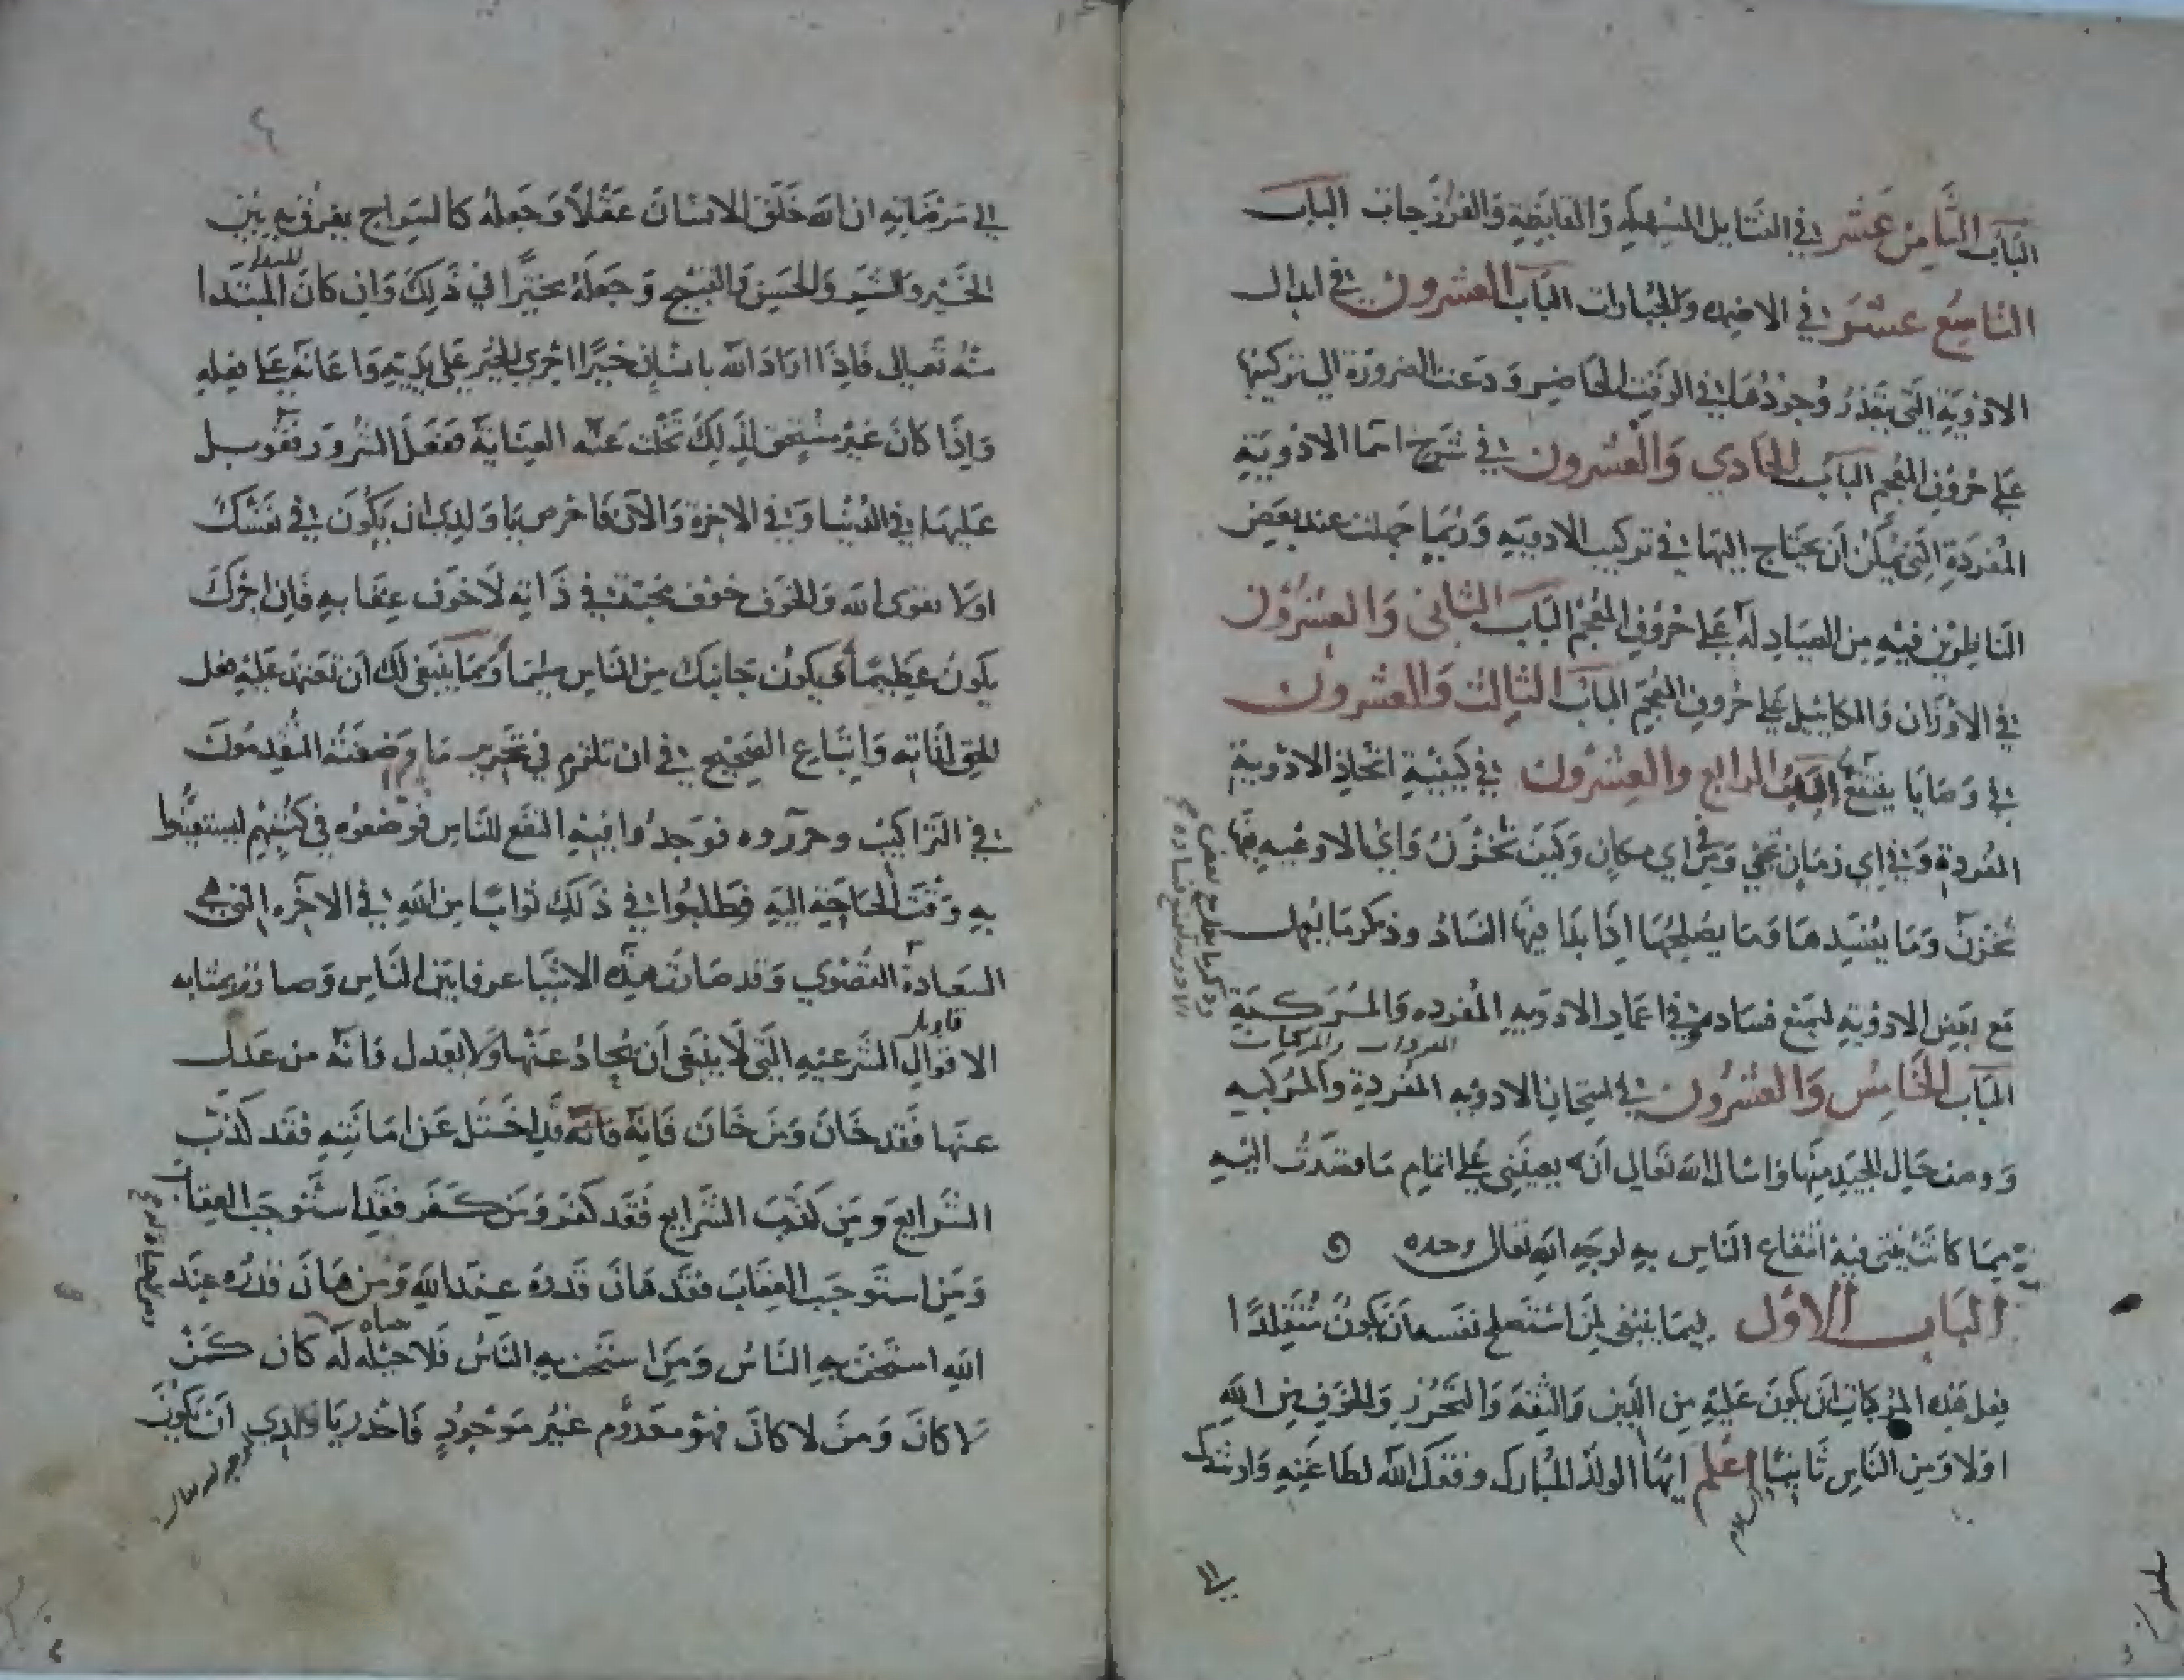 الباب الثامن عشر في الفتايل المسهله والقابضة والفرزجات الباب
التاسع عشر في الاضمده والجبارات الباب العشرون في ابدال
الادوية التي يتعذر وجودها في الوقت الحاضر ودعت الضرورة الي تركيبها
علي حروف المعجم الباب الحادي والعشرون في شرح اسما الادوية
المفردة التي يمكن ان يحتاج اليها في تركيب الادوية وربما جهلت عند بعض
الناظرين فيه من الصيادله علي حروف المعجم الباب الثاني والعشرون
في الاوزان والمكاييل علي حروف المعجم الباب الثالث والعشرون
في وصايا ينتفع بها الباب الرابع والعشرون في كيفية اتخاذ الادوية
المفردة وفي اي زمان تجني ومن اي مكان وكيف تخزن واي الاوعيه فيها
تخزن وما يفسدها وما يصلحها اذا بدا فيها الفساد وذكر ما يعمل
مع بعض الادوية ليمنع فساده وفي اعمار الادويه المفرده والمركبة
المفردات والمركبات
الباب الخامس والعشرون في امتحان الادويه المفردة والمركبه
ووصف حال الجيد منها واسال الله تعالي انه يعينني علي اتمام ما قصدت اليه
فيما كانت نيتي فيه انتفاع الناس به لوجه الله تعالي وحده
الباب الاول فيما ينبغي لمن استصلح نفسه ان يكون متقلدا
فعل هذه المركبات ان يكون عليه من الدين والثقة والتحرز والخوف من الله
اولا ومن الناس ثانيا اعلم ايها الولد المبارك وفقك الله لطاعته وارشدك
الي
الي مرضاته ان الله خلق للانسان عقلا وجعله كالسراج يفرق به بين
الخير والشر والحسن والقبيح وجعله مخيرا في ذلك وان كان المبتدا
منه تعالي فاذا اراد الله بانسان خيرا اجري الخير علي يديه واعانه علي فعله
واذا كان غير مستحق لذلك تخلت عنه العناية ففعل الشرور فقوبل
عليها في الدنيا وفي الاخرة والان فاحرص يا ولدي ان يكون في نفسك
اولا تقوي الله والخوف خوف محبته في ذاته لا خوف عقابه فان اجرك
يكون عظيما ويكون جانبك من الناس سليما ومما ينبغي لك ان تعتمد عليه فعل
الحق لذاته واتباع الصحيح في ان تلتزم في تحرير ما وضعته المتقدمون
في التراكيب وحرروه فوجدوا فيه النفع للناس فوضعوه في كتبهم ليستعينوا
به وقت الحاجة اليه وطلبوا في ذلك ثوابا من الله في الاخره التي هي
السعادة القصوي وقد صارت هذه الاشيا عرفا بين الناس وصارت بمثابه
الاقوال الشرعيه التي لا ينبغي ان يحاد عنها ولا يعدل فانه من عدل
عنها فقد خان ومن خان فانه فانه قد اختل عن امانته فقد كذب
الشرايع ومن كذب الشرايع فقد كفر ومن كفر فقد استوجب العقاب
ومن استوجب العقاب فقد هان قدره عند الله ومن هان قدره عند
الله استخف به الناس ومن استخف به الناس فلا حيله له كان كمن
لا كان ومن لا كان فهو معدوم غير موجود فاحذر يا ولدي ان تكون